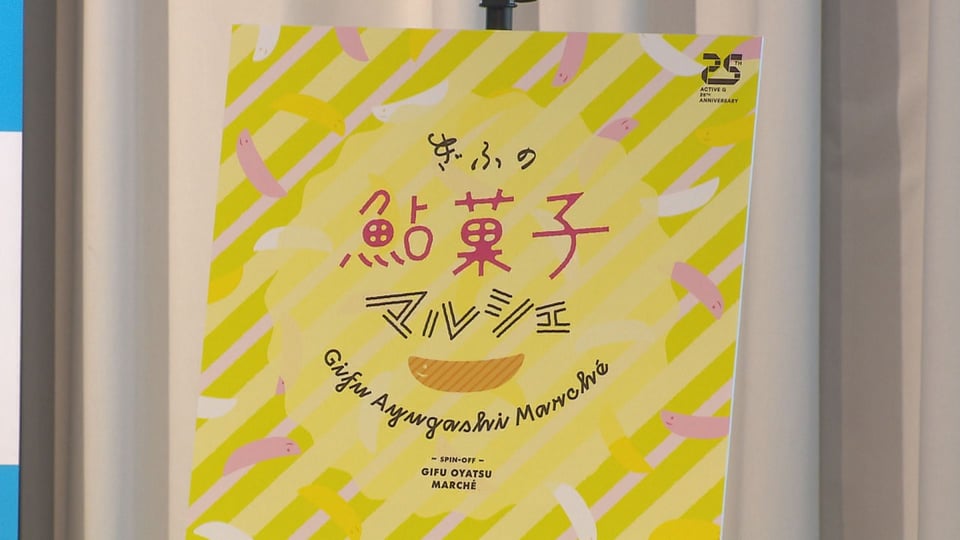 25TH
ACTIVE G
25TH
ANNIVERSARY
ぎふの
鮎菓子
マルシェ
Gifu Ayugashi Marché
– SPIN-OFF –
GIFU OYATSU
MARCHÉ